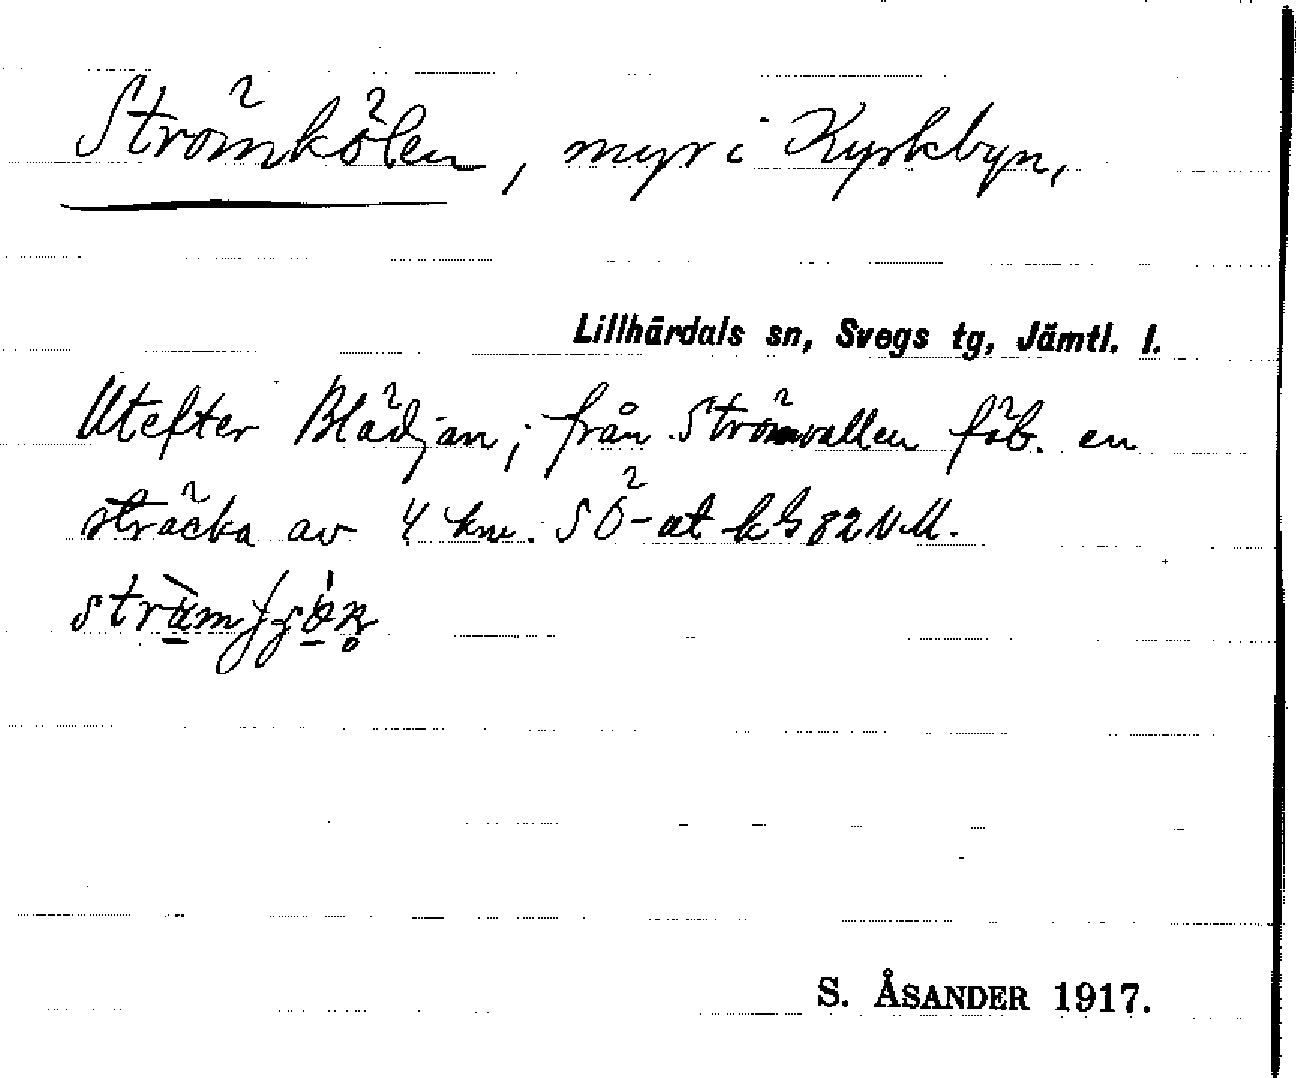 Strömkölen, myr i Kyrkbyn,
Lillhärdals sn, Svegs tg, Jämtl. l.
Utefter Blädjan; från Strömvallen fäb. en
sträcka av 4 km. SÖ-ut
S. ÅSANDER 1917.